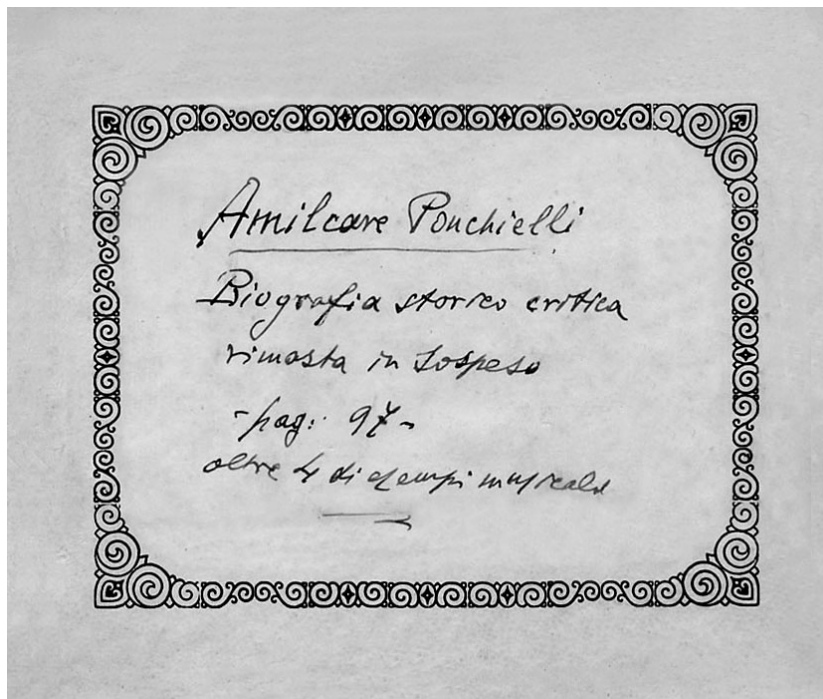 Amilcare Ponchielli
Biografia storico critica
rimasta in sospeso
- pag: 97 -
oltre 4 di esempi musicali